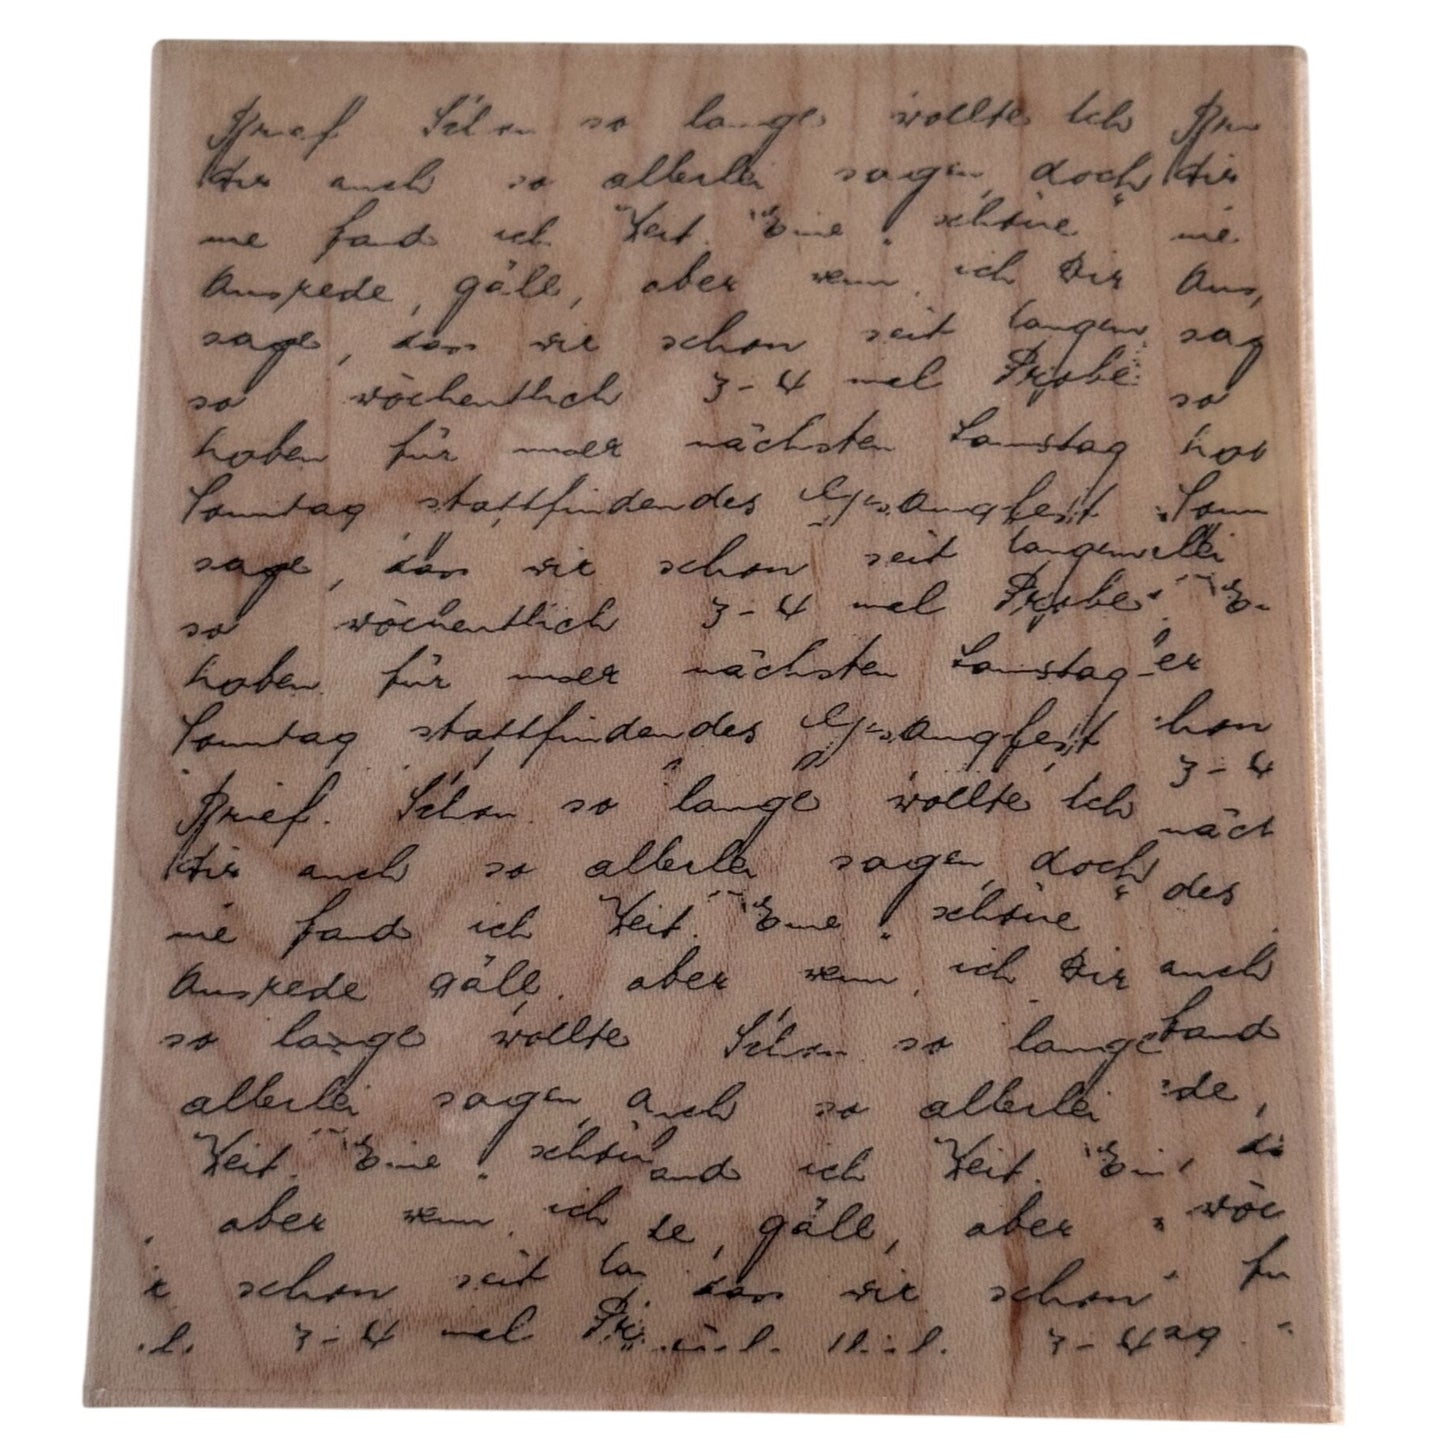 Brief. Schon so lange wollte Ich Brie
dir auch so allerlei sagen, doch dir
nie fand ich Zeit. Eine schöne nie
Ausrede, gäll, aber wenn ich Dir Aus,
sage, dass wir schon seit langem sag
so wöchentlich 3-4 mal Probe so
haben für unser nächsten Samstag hab
Sonntag stattfindendes Gesangfest Sonn
sage, dass wir schon seit langem rlei
so wöchentlich 3-4 mal Probe E
haben für unser nächsten Samstag er
Sonntag stattfindendes Gesangfest hon
3-4
Brief. Schon so lange wollte Ich
näch
dir auch so allerlei sagen, doch des
nie fand ich Zeit. Eine schöne
Ausrede gäll, aber wenn ich Dir auch
so lange wollte Schon so lange fand
allerlei sagen, auch so allerlei de,
Zeit. Eine schön and ich Zeit. Ein
aber wenn ich de, gäll, aber wöc
r schon seit la dass wir schon fü
3-4 mal Pr 3-4 ag